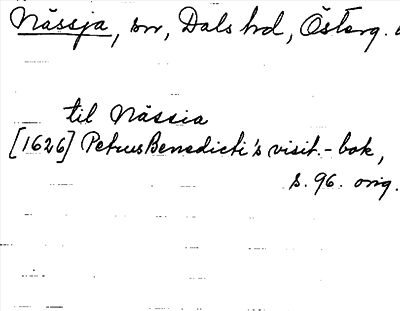 Nässja, sn, Dals hd, Österg.
til Nässia
[1626] Petrus Benedicti's visit.-bok,
s. 96. orig.